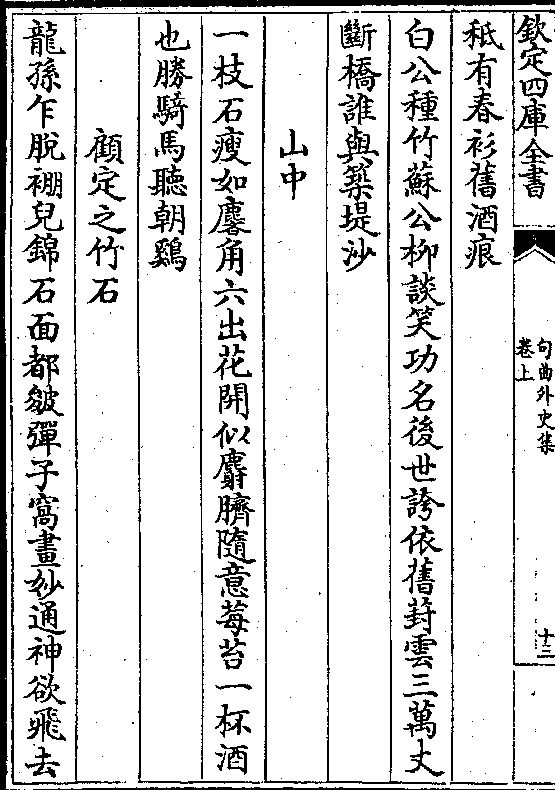 欽定四庫全書
句曲外史集
卷上
十三
秪有春衫舊酒痕
白公種竹蘇公栁談笑功名後世誇依舊葑雲三萬丈
斷橋誰與築堤沙
山中
一枝石瘦如麏角六出花開似麝臍隨意莓苔一杯酒
也勝騎馬聽朝鷄
顧定之竹石
龍孫乍脫裯兒錦石面都皴彈子窩畫妙通神欲飛去